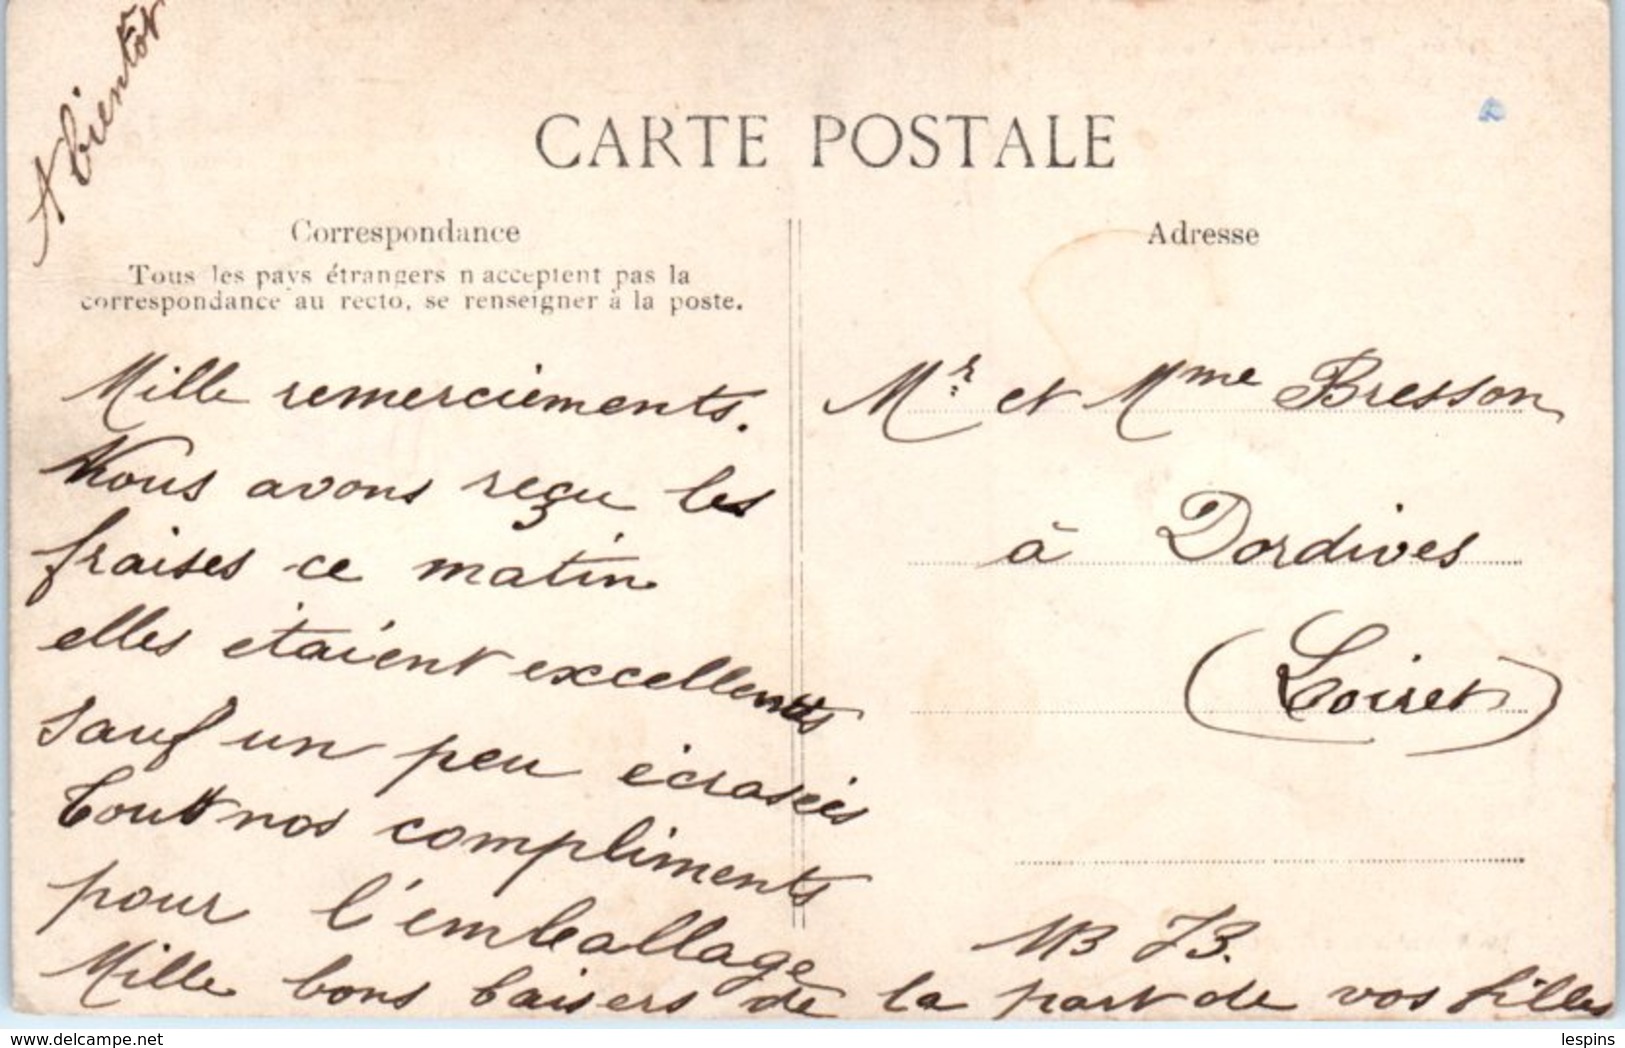 A bientôt
CARTE POSTALE
Correspondance
Tous les pays étrangers n'acceptent pas la
correspondance au recto, se renseigner à la poste.
Mille remerciements.
Nous avons reçu les
fraises ce matin
elles étaient excellents
sauf un peu écrasées
tout nos compliments
pour l'emballage
Mille bons baisers de la part de vos filles
MB JB.
Adresse
Mr et Mme Bresson
à Dordives
(Loiret)
www.delcampe.net
lespins